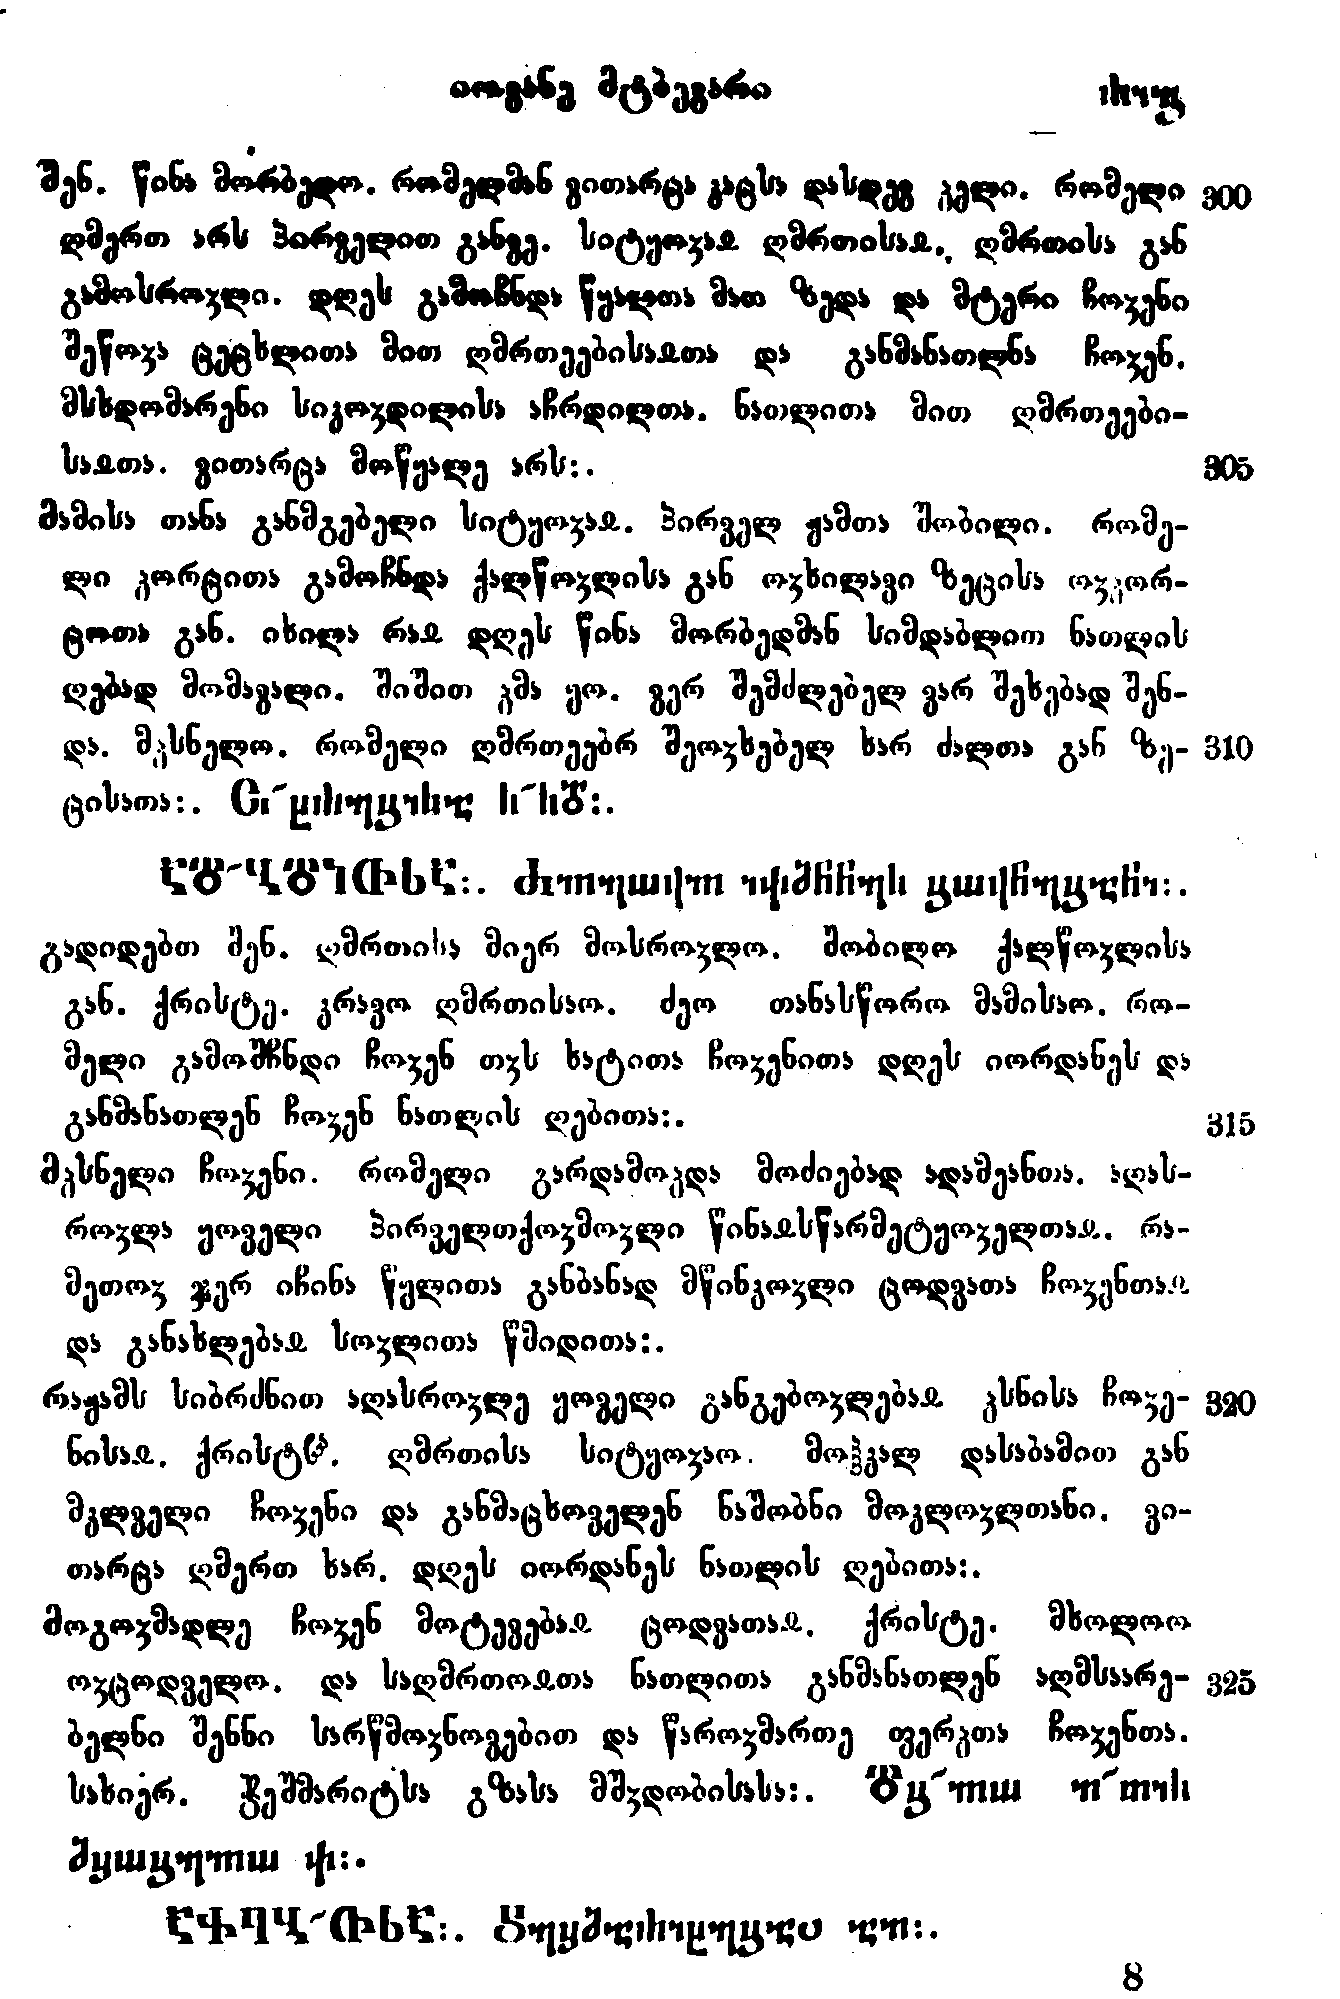 იოვანე მტბევარი
შენ. წინა მორბედო. რომელმან ვითარცა კაცსა დასდევ ჴელი. რომელი 300
ღმერთ არს პირველით განვე. სიტყოჳაჲ ღმრთისაჲ. ღმრთისა გან
გამოსროჳლი. დღეს გამოჩნდა წყალთა მათ ზედა და მტერი ჩოჳენი
შეწოჳა ცეცხლითა მით ღმრთეებისაჲთა და განმანათლნა ჩოჳენ.
მსხდომარენი სიკოჳდილისა აჩრდილთა. ნათლითა მით ღმრთეები-
საჲთა. ვითარცა მოწყალე არს:. 305
მამისა თანა განმგებელი სიტყოჳაჲ. პირველ ჟამთა შობილი. რომე-
ლი ჴორცითა გამოჩნდა ქალწოჳლისა გან ოჳხილავი ზეცისა ოჳჴორ-
ცოთა გან. იხილა რაჲ დღეს წინა მორბედმან სიმდაბლით ნათლის
ღებად მომავალი. შიშით ჴმა ყო. ვერ შემძლებელ ვარ შეხებად შენ-
და. მჴსნელო. რომელი ღმრთეებრ შეოჳხებელ ხარ ძალთა გან ზე- 310
ცისათა:.
გადიდებთ შენ. ღმრთისა მიერ მოსროჳლო. შობილო ქალწოჳლისა
გან. ქრისტე. კრავო ღმრთისაო. ძეო თანასწორო მამისაო. რო-
მელი გამოშჩნდი ჩოჳენ თჳს ხატითა ჩოჳენითა დღეს იორდანეს და
განმანათლენ ჩოჳენ ნათლის ღებითა:. 315
მჴსნელი ჩოჳენი. რომელი გარდამოჴდა მოძიებად ადამეანთა. აღას-
როჳლა ყოველი პირველთქოჳმოჳლი წინაჲსწარმეტყოჳელთაჲ. რა-
მეთოჳ ჯერ იჩინა წყლითა განბანად მწინკოჳლი ცოდვათა ჩოჳენთაჲ
და განახლებაჲ სოჳლითა წმიდითა:.
რაჟამს სიბრძნით აღასროჳლე ყოველი განგებოჳლებაჲ ჴსნისა ჩოჳე- 320
ნისაჲ. ქრისტჱ. ღმრთისა სიტყოჳაო. მოჰკალ დასაბამით გან
მკლველი ჩოჳენი და განმაცხოველენ ნაშობნი მოკლოჳლთანი. ვი-
თარცა ღმერთ ხარ. დღეს იორდანეს ნათლის ღებითა:.
მოგოჳმადლე ჩოჳენ მოტევებაჲ ცოდვათაჲ. ქრისტე. მხოლოო
ოჳცოდველო. და საღმრთოჲთა ნათლითა განმანათლენ აღმსაარე- 325
ბელნი შენნი სარწმოჳნოვებით და წაროჳმართე ფერჴთა ჩოჳენთა.
სახიერ. ჭეშმარიტსა გზასა მშჳდობისასა:.
8